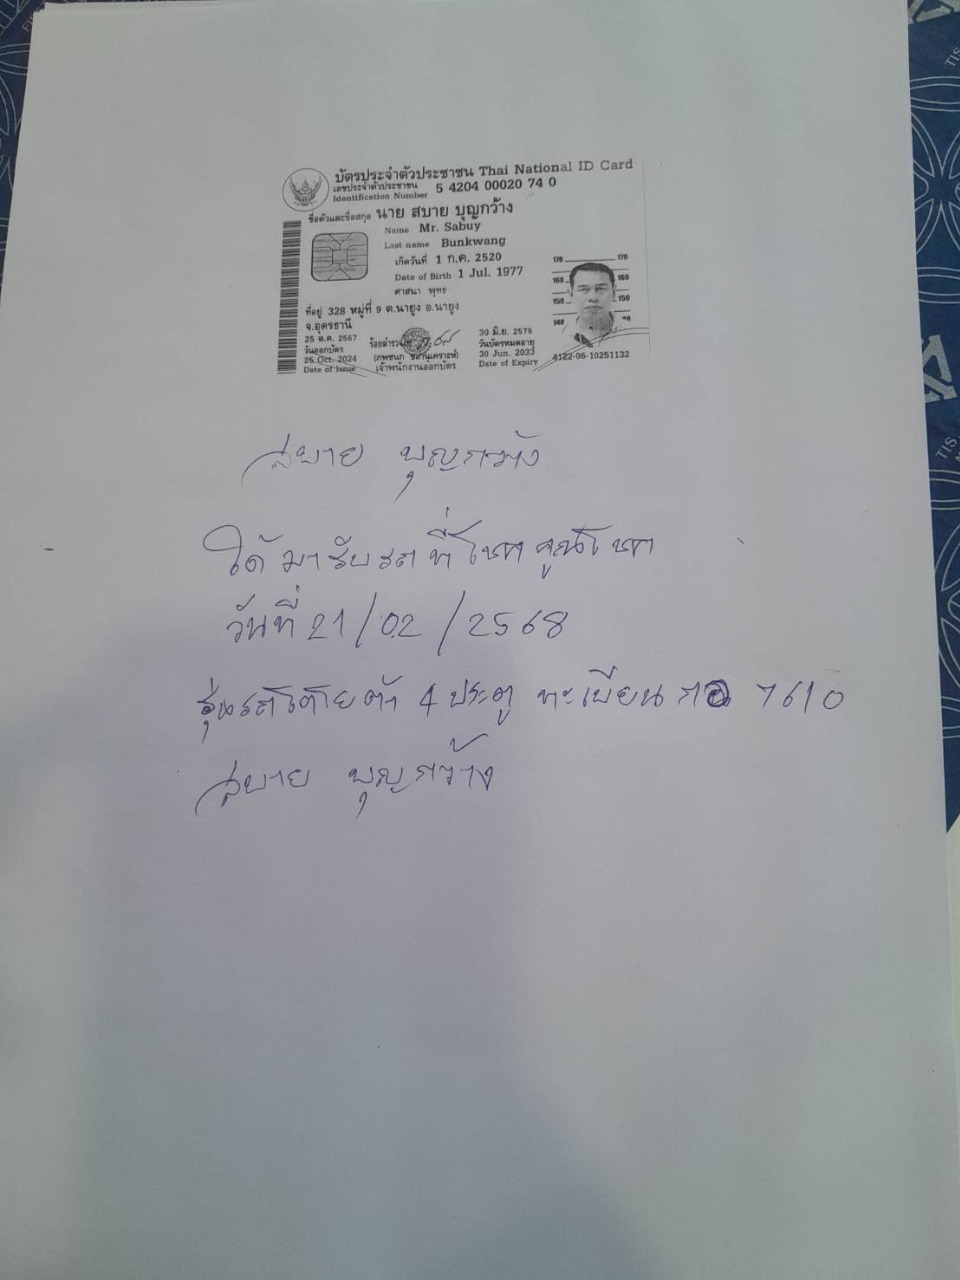 บัตรประจำตัวประชาชน Thai National ID Card
เลขประจำตัวประชาชน
Identification Number 5 4204 00020 74 0
ชื่อตัวและชื่อสกุล นาย สบาย บุญกว้าง
Name Mr. Sabuy
Last name Bunkwang
เกิดวันที่ 1 ก.ค. 2520
Date of Birth 1 Jul. 1977
ศาสนา พุทธ
ที่อยู่ 328 หมู่ที่ 9 ต.นายูง อ.นายูง
จ.อุดรธานี
25 ต.ค. 2567
วันออกบัตร
25 Oct. 2024
Date of Issue
ร้อยตำรวจ
เจ้าพนักงานออกบัตร
30 มิ.ย. 2576
วันบัตรหมดอายุ
30 Jun. 2033
Date of Expiry
170 170
160 160
150 150
140
4122-06-10251132
สบาย บุญกว้าง
ได้มารับรถที่โชคคูณโชค
วันที่ 21/02/2568
รุ่นรถ 4 ประตู ทะเบียน 7610
สบาย บุญกว้าง
TIS
TIS